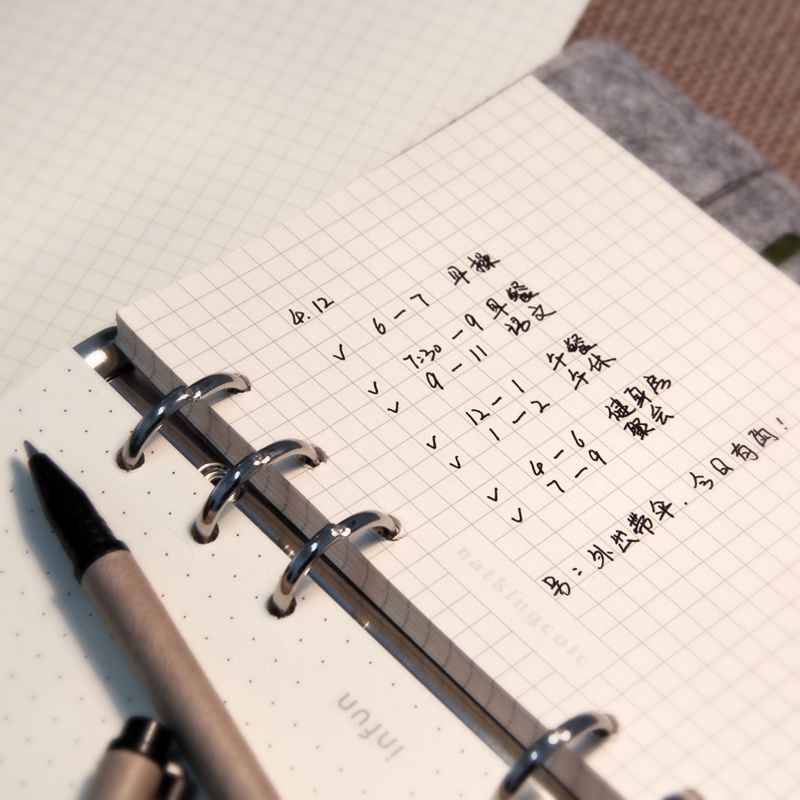 4.12
✓ 6-7 早操
✓ 7:30-9 早餐
✓ 9-11 语文
✓ 12-1 午餐
✓ 1-2 午休
✓ 4-6 健身房
✓ 7-9 聚会
另:外出带伞.今日有雨!
natkingcole
infun